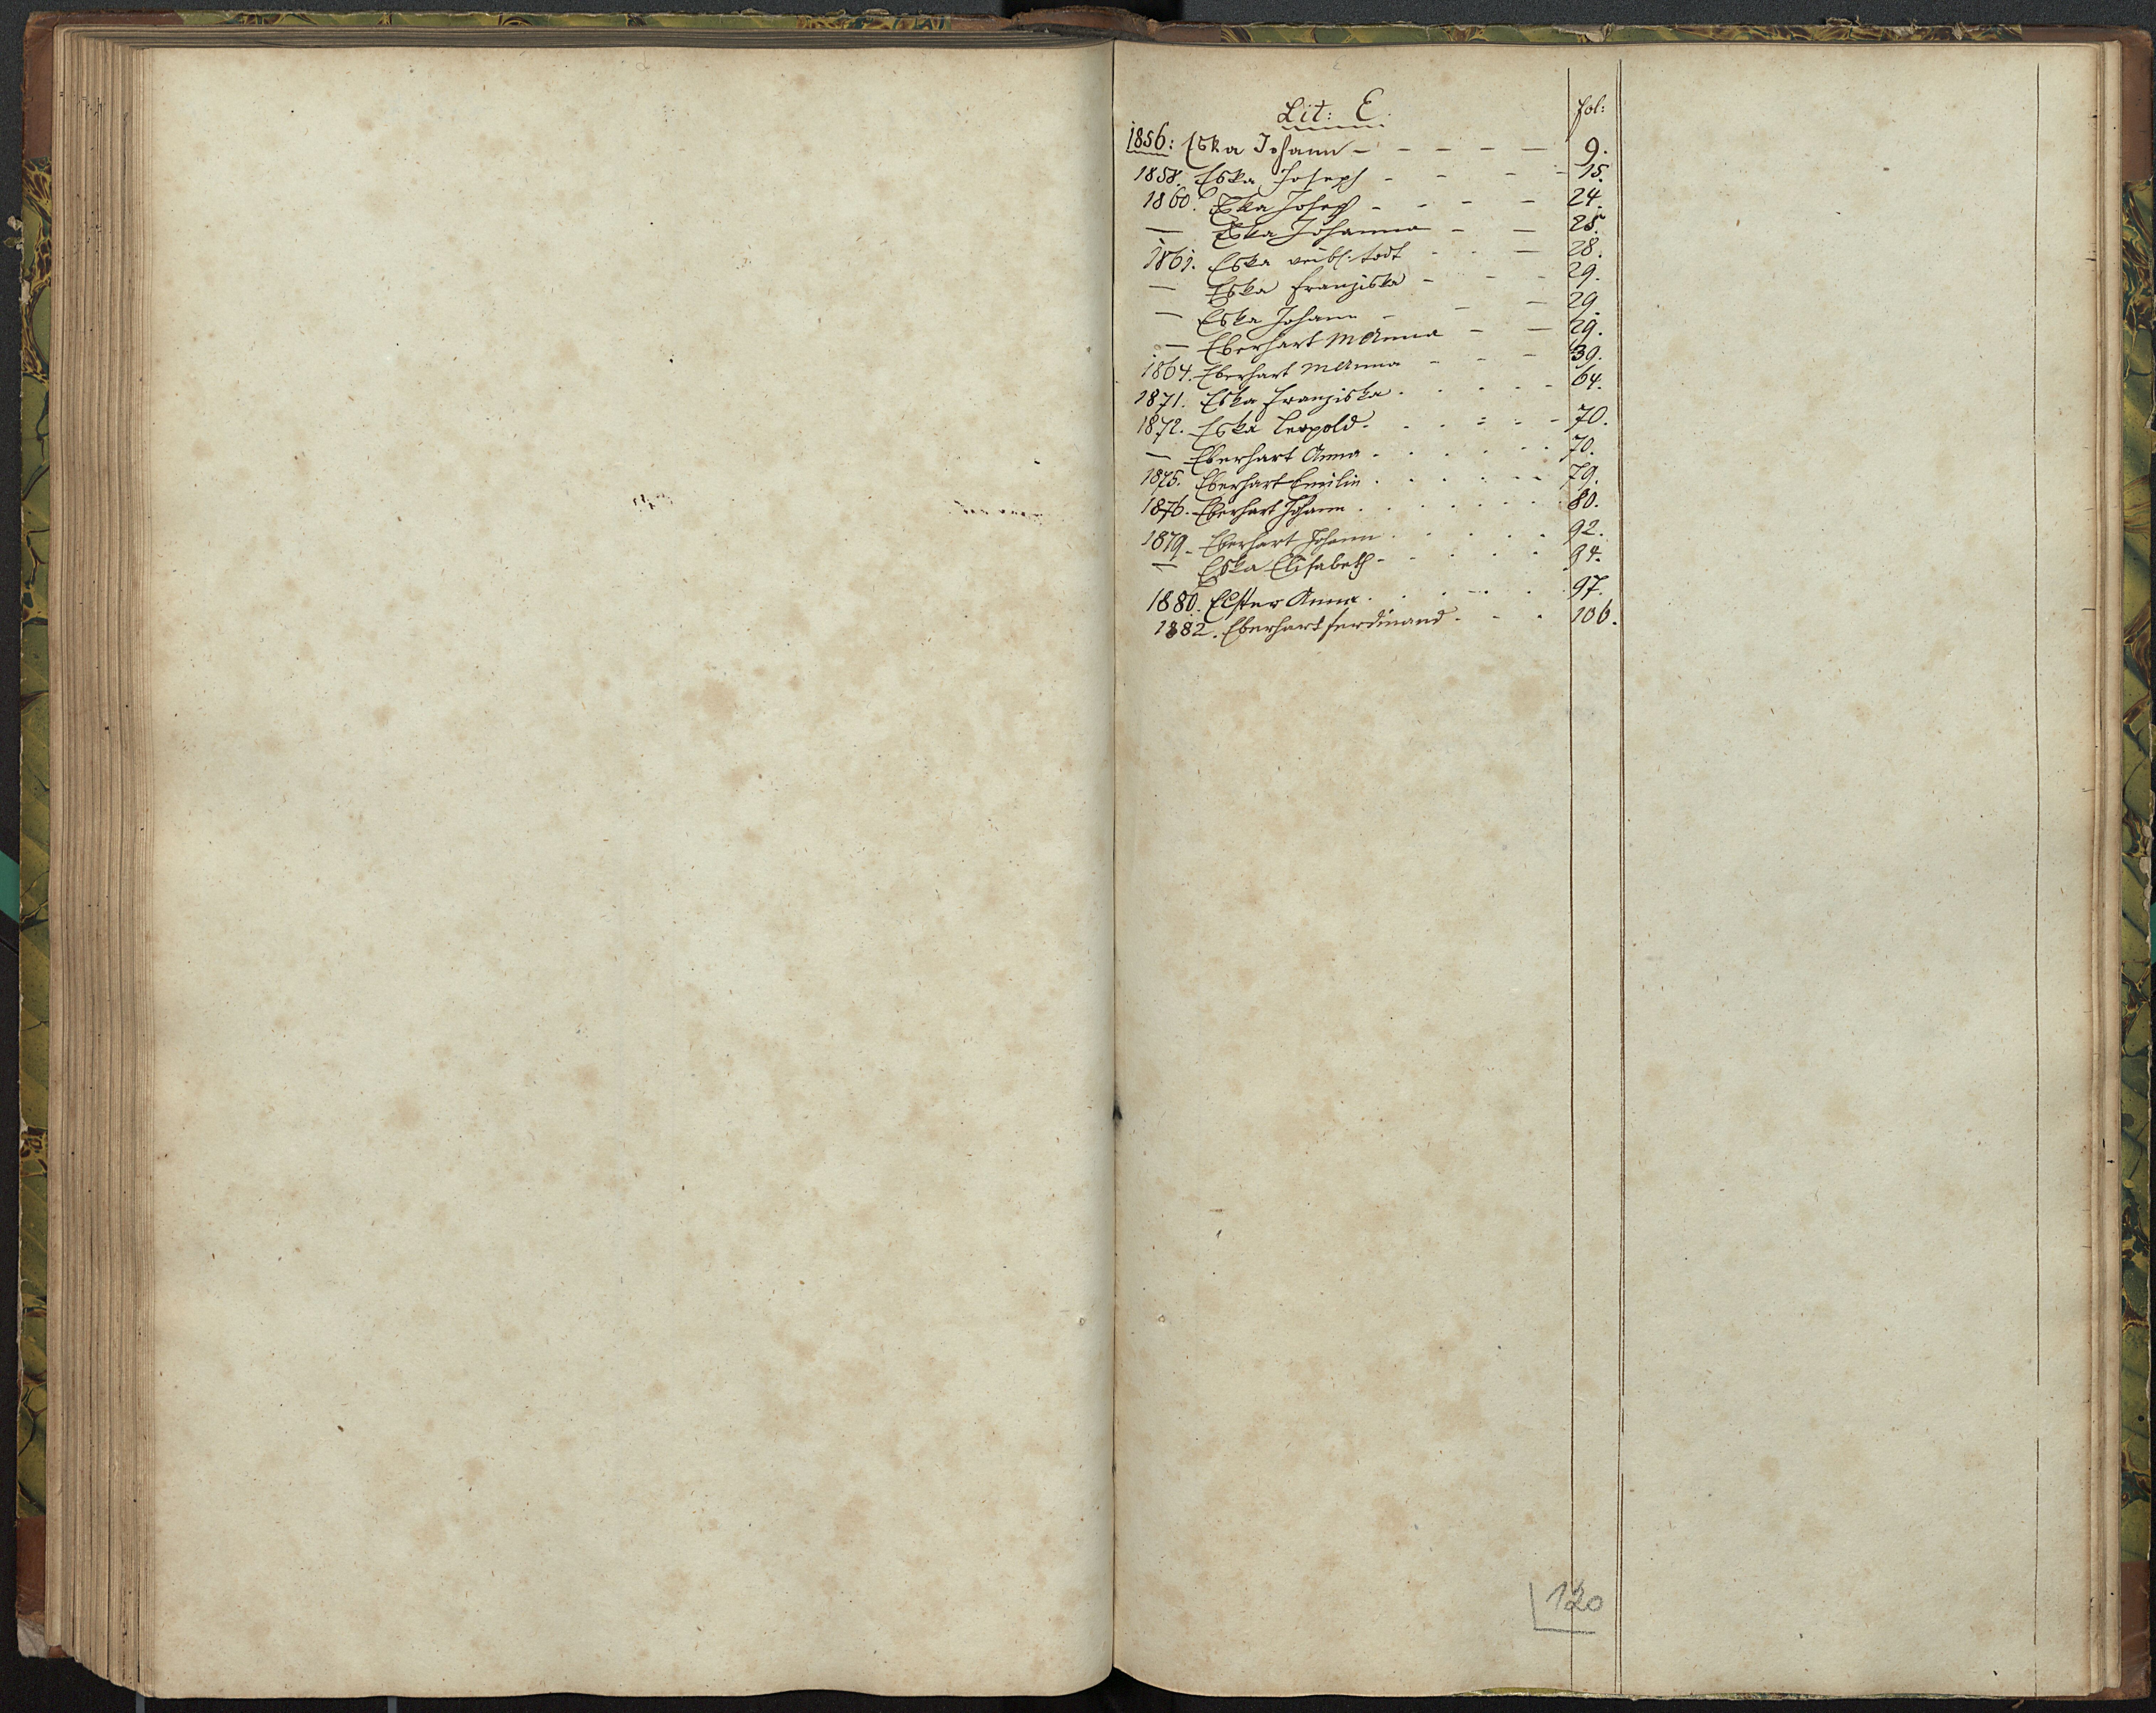 Lit: E. fol:
1856: Eska Johann - - - - - 9.
1858. Eska Joseph - - - - 15.
1860. Eska Joseph - - - - 24.
— Eska Johanna - - 25.
1861. Eska weibl: todt - - - 28.
— Eska Franziska - - - 29.
— Eska Johann - - - 29.
— Eberhart M Anna - - 29.
1864. Eberhart M Anna - - - 39.
1871. Eska Franziska . . . . . 64.
1872. Eska Leopold. . . . . . 70.
— Eberhart Anna . . . . . . 70.
1875. Eberhart Emilie . . . . . . 79.
1876. Eberhart Johann . . . . . . 80.
1879. Eberhart Johann . . . . . 92.
— Eska Elisabeth . . . . . 94.
1880. Elster Anna . . . . . . 97.
1882. Eberhart Ferdinand . . . 106.
120